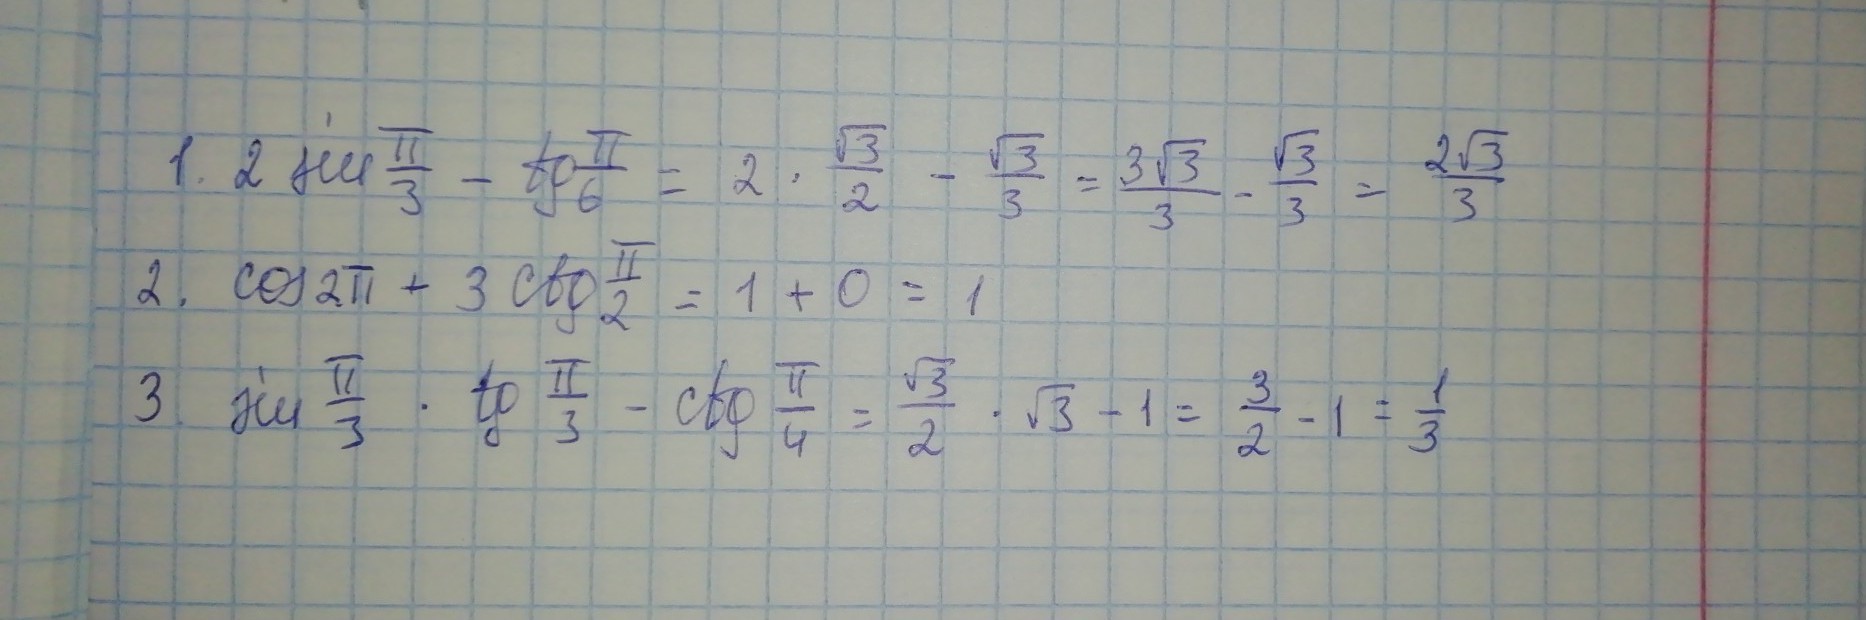 1. 2 sin π/3 - tg π/6 = 2 · √3/2 - √3/3 = 3√3/3 - √3/3 = 2√3/3
2. cos 2π + 3 ctg π/2 = 1 + 0 = 1
3 sin π/3 · tg π/3 - ctg π/4 = √3/2 · √3 - 1 = 3/2 - 1 = 1/3